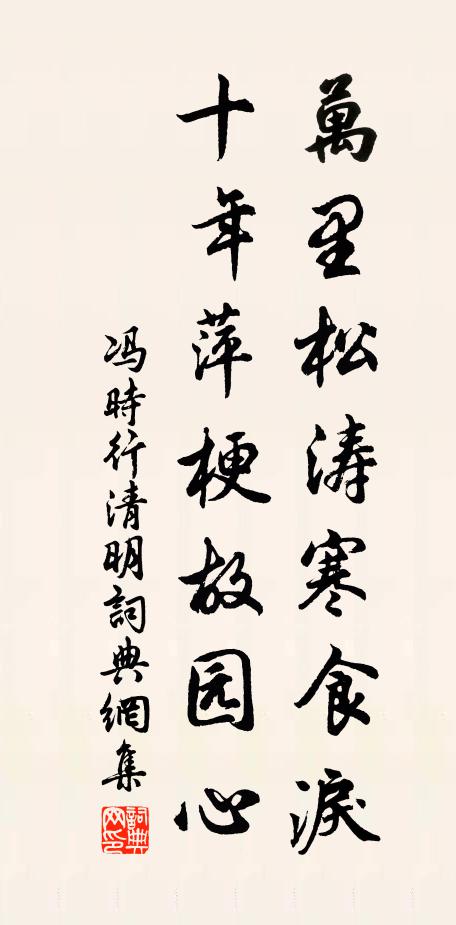 萬里松涛寒食淚
十年萍梗故园心
冯時行清明詞典網集
詞典网印